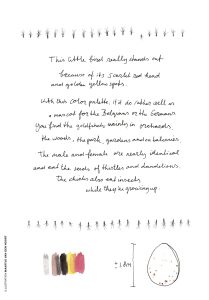 This little bird really stands out
because of its scarlet red head
and golden yellow spots.
With this color palette, it'd do rather well as
a mascot for the Belgians or the Germans.
You find the goldfinch mainly in orchards,
the woods, the park, gardens and on balconies.
The male and female are nearly identical
and eat the seeds of thistles and dandelions.
The chicks also eat insects
while they're growing up.
± 1.8 cm